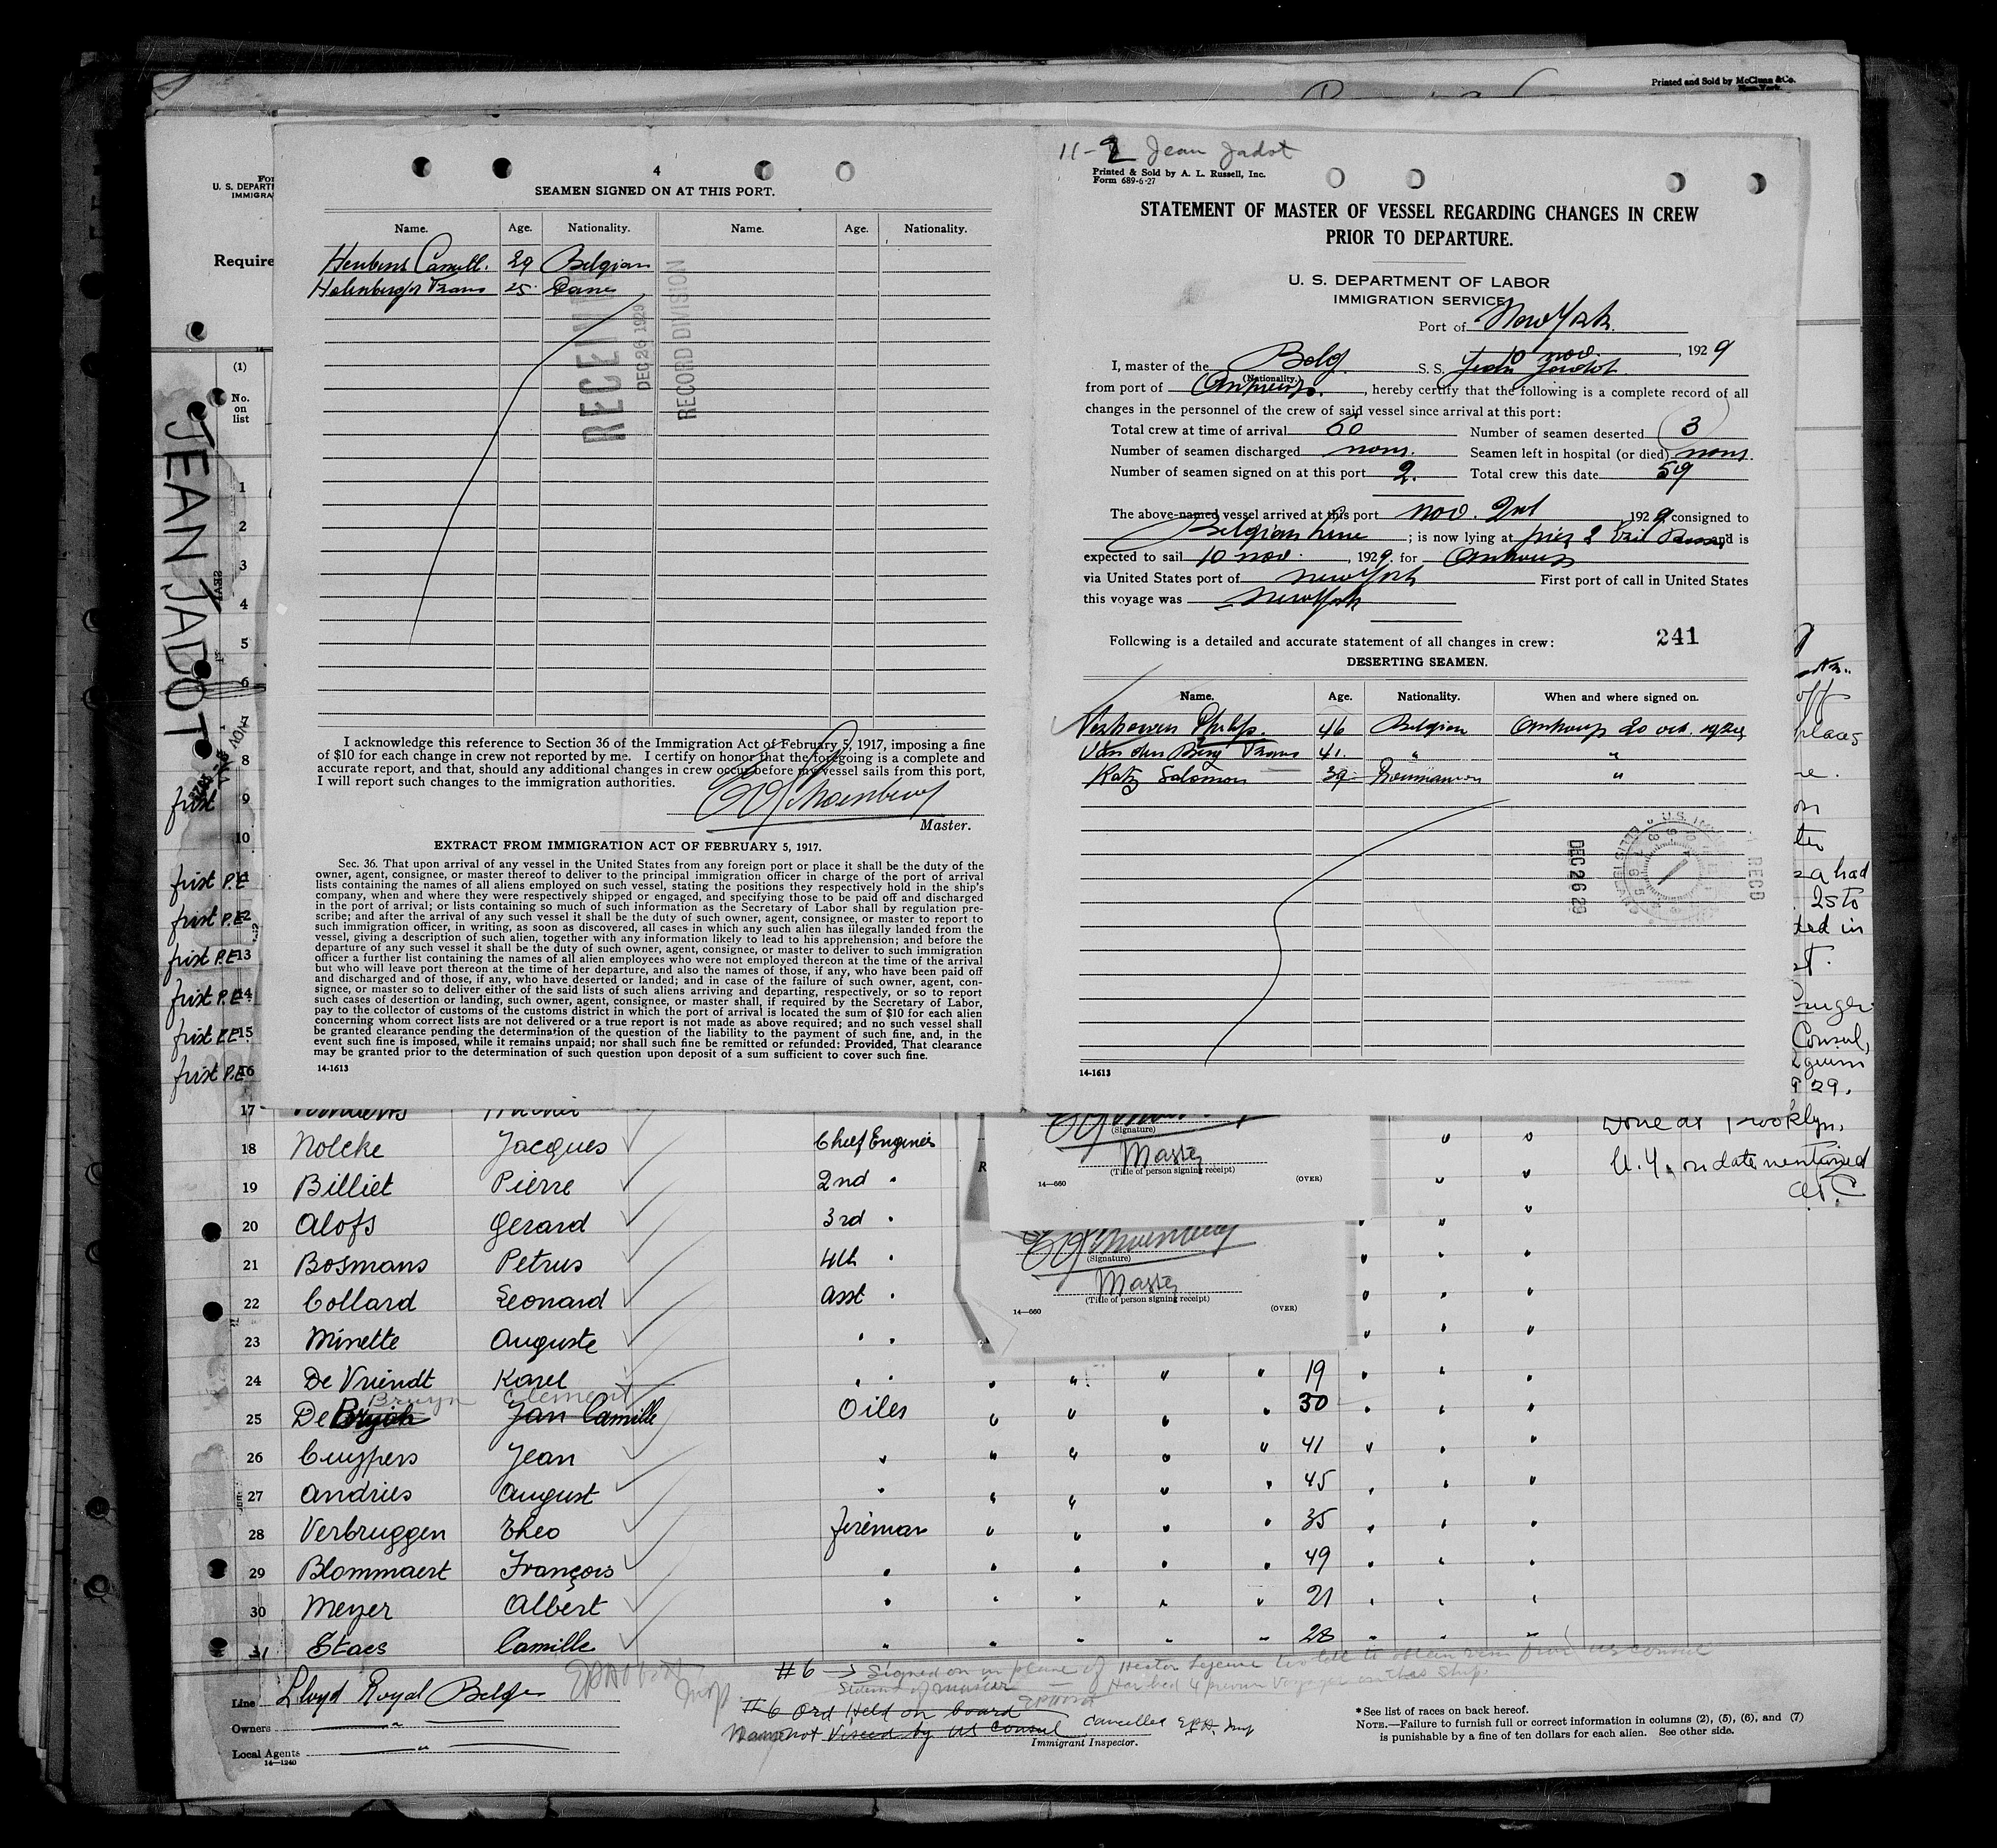 Printed and Sold by McClunn & Co.
New York.
JEAN JADOT
U. S. DEPART
IMMIGRA
Require
(1)
No.
on
list
1
2
3
4
5
6
7
8
first 9
10
first P.E
first P.E 2
first P.E 13
first P.E 4
first P.E 15
first P.E 6
4
SEAMEN SIGNED ON AT THIS PORT.
Name. Age. Nationality. Name. Age. Nationality.
29 Belgian
25 Dane
RECEIV
DEC 26 1929
RECORD DIVISION
I acknowledge this reference to Section 36 of the Immigration Act of February 5, 1917, imposing a fine
of $10 for each change in crew not reported by me. I certify on honor that the foregoing is a complete and
accurate report, and that, should any additional changes in crew occur before my vessel sails from this port,
I will report such changes to the immigration authorities.
Master.
EXTRACT FROM IMMIGRATION ACT OF FEBRUARY 5, 1917.
Sec. 36. That upon arrival of any vessel in the United States from any foreign port or place it shall be the duty of the
owner, agent, consignee, or master thereof to deliver to the principal immigration officer in charge of the port of arrival
lists containing the names of all aliens employed on such vessel, stating the positions they respectively hold in the ship's
company, when and where they were respectively shipped or engaged, and specifying those to be paid off and discharged
in the port of arrival; or lists containing so much of such information as the Secretary of Labor shall by regulation pre-
scribe; and after the arrival of any such vessel it shall be the duty of such owner, agent, consignee, or master to report to
such immigration officer, in writing, as soon as discovered, all cases in which any such alien has illegally landed from the
vessel, giving a description of such alien, together with any information likely to lead to his apprehension; and before the
departure of any such vessel it shall be the duty of such owner, agent, consignee, or master to deliver to such immigration
officer a further list containing the names of all alien employees who were not employed thereon at the time of the arrival
but who will leave port thereon at the time of her departure, and also the names of those, if any, who have been paid off
and discharged and of those, if any, who have deserted or landed; and in case of the failure of such owner, agent, con-
signee, or master so to deliver either of the said lists of such aliens arriving and departing, respectively, or so to report
such cases of desertion or landing, such owner, agent, consignee, or master shall, if required by the Secretary of Labor,
pay to the collector of customs of the customs district in which the port of arrival is located the sum of $10 for each alien
concerning whom correct lists are not delivered or a true report is not made as above required; and no such vessel shall
be granted clearance pending the determination of the question of the liability to the payment of such fine, and, in the
event such fine is imposed, while it remains unpaid; nor shall such fine be remitted or refunded: Provided, That clearance
may be granted prior to the determination of such question upon deposit of a sum sufficient to cover such fine.
14-1613
11-2 Jean Jadot
Printed & Sold by A. L. Russell, Inc.
Form 689-6-27
STATEMENT OF MASTER OF VESSEL REGARDING CHANGES IN CREW
PRIOR TO DEPARTURE.
U. S. DEPARTMENT OF LABOR
IMMIGRATION SERVICE
Port of New York.
10 nov. , 1929
I, master of the Belg. S. S. Jean Jadot
(Nationality.)
from port of Antwerp. , hereby certify that the following is a complete record of all
changes in the personnel of the crew of said vessel since arrival at this port:
Total crew at time of arrival 60 Number of seamen deserted 3
Number of seamen discharged none. Seamen left in hospital (or died) none.
Number of seamen signed on at this port 2. Total crew this date 59
The above-named vessel arrived at this port nov. 2nd 1929, consigned to
Belgian Line ; is now lying at pier 2 and is
expected to sail 10 nov. , 1929. for Antwerp
via United States port of New York First port of call in United States
this voyage was New York
Following is a detailed and accurate statement of all changes in crew: 241
DESERTING SEAMEN.
Name. Age. Nationality. When and where signed on.
Philip. 46 Belgian Antwerp 20 oct. 1929
Van den Berg Frans 41. " "
Katz Salomon 39 Roumanian "
DEC 26 29
RECD
14-1613
had
25 to
ted in
Consul,
29.
Done at Brooklyn,
N.Y. on date mentioned
17
18 Nolcke Jacques Chief Engineer
19 Billiet Pierre 2nd "
20 Alofs Gerard 3rd "
21 Bosmans Petrus 4th "
22 Collard Leonard Asst "
23 Minette Auguste " "
24 De Vriendt Karel " " 19
Bruyn Clement
25 De Jan Camille Oiler 30
26 Cuypers Jean " 41
27 Andries August " 45
28 Verbruggen Theo Fireman 35
29 Blommaert François " 49
30 Meyer Albert " 21
31 Staes Camille " 28
(Signature)
Master
(Title of person signing receipt)
14—660 (OVER)
(Signature)
Master
(Title of person signing receipt)
14—660 (OVER)
Line Lloyd Royal Belge
Owners "
Local Agents "
14—1240
#6 → Signed on in place of Hector
#6 Ord Held on board
not Viseed by US Consul cancelled
Immigrant Inspector.
* See list of races on back hereof.
NOTE.—Failure to furnish full or correct information in columns (2), (5), (6), and (7)
is punishable by a fine of ten dollars for each alien. See other side.